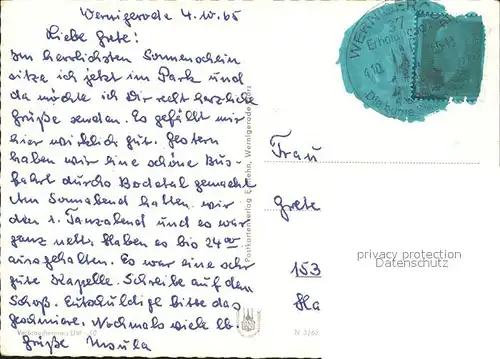 Wernigerode 4.10.65
Liebe Grete!
Im herrlichsten Sonnenschein
sitze ich jetzt im Park und
da möchte ich Dir recht herzliche
Grüße senden. Es gefällt mir
hier wirklich gut. Gestern
haben wir eine schöne Bus-
fahrt durchs Bodetal gemacht
Am Sonnabend hatten wir
den 1. Tanzabend und es war
ganz nett. Haben es bis 24 00
ausgehalten. Es war eine sehr
gute Kapelle. Schreibe auf dem
Schoß. Entschuldige bitte das
Geschmiere. Nochmals viele lb.
Grüße Ursula
Verbraucherpreis
N 3/65
Postkartenverlag E. Wernigerode Harz
WERNIGERODE
Erholung
4.10.
Die bunte
Frau
Grete
153
privacy protection
Datenschutz